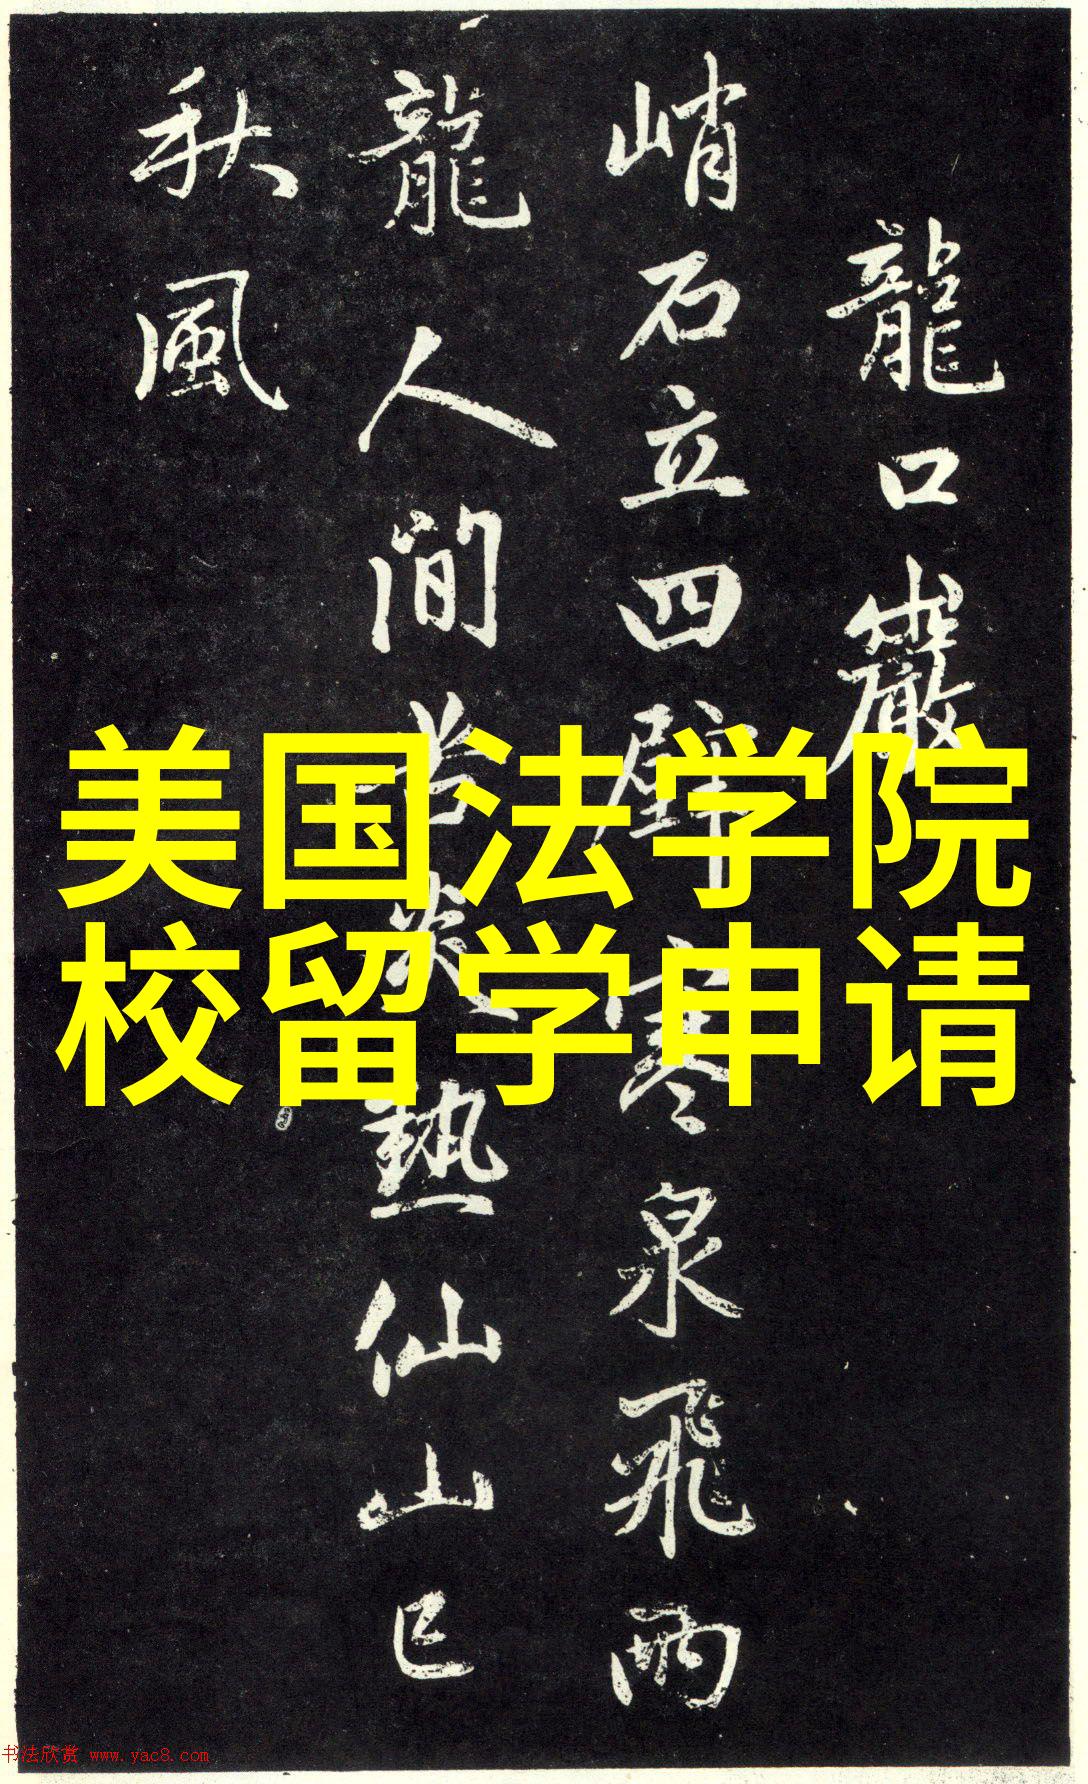 龍口巖
峭石立四壁寒泉飛雨
龍人間苦炎熱仙山已
秋風
美国法学院
校留学申请
书法欣赏 www.yac8.com